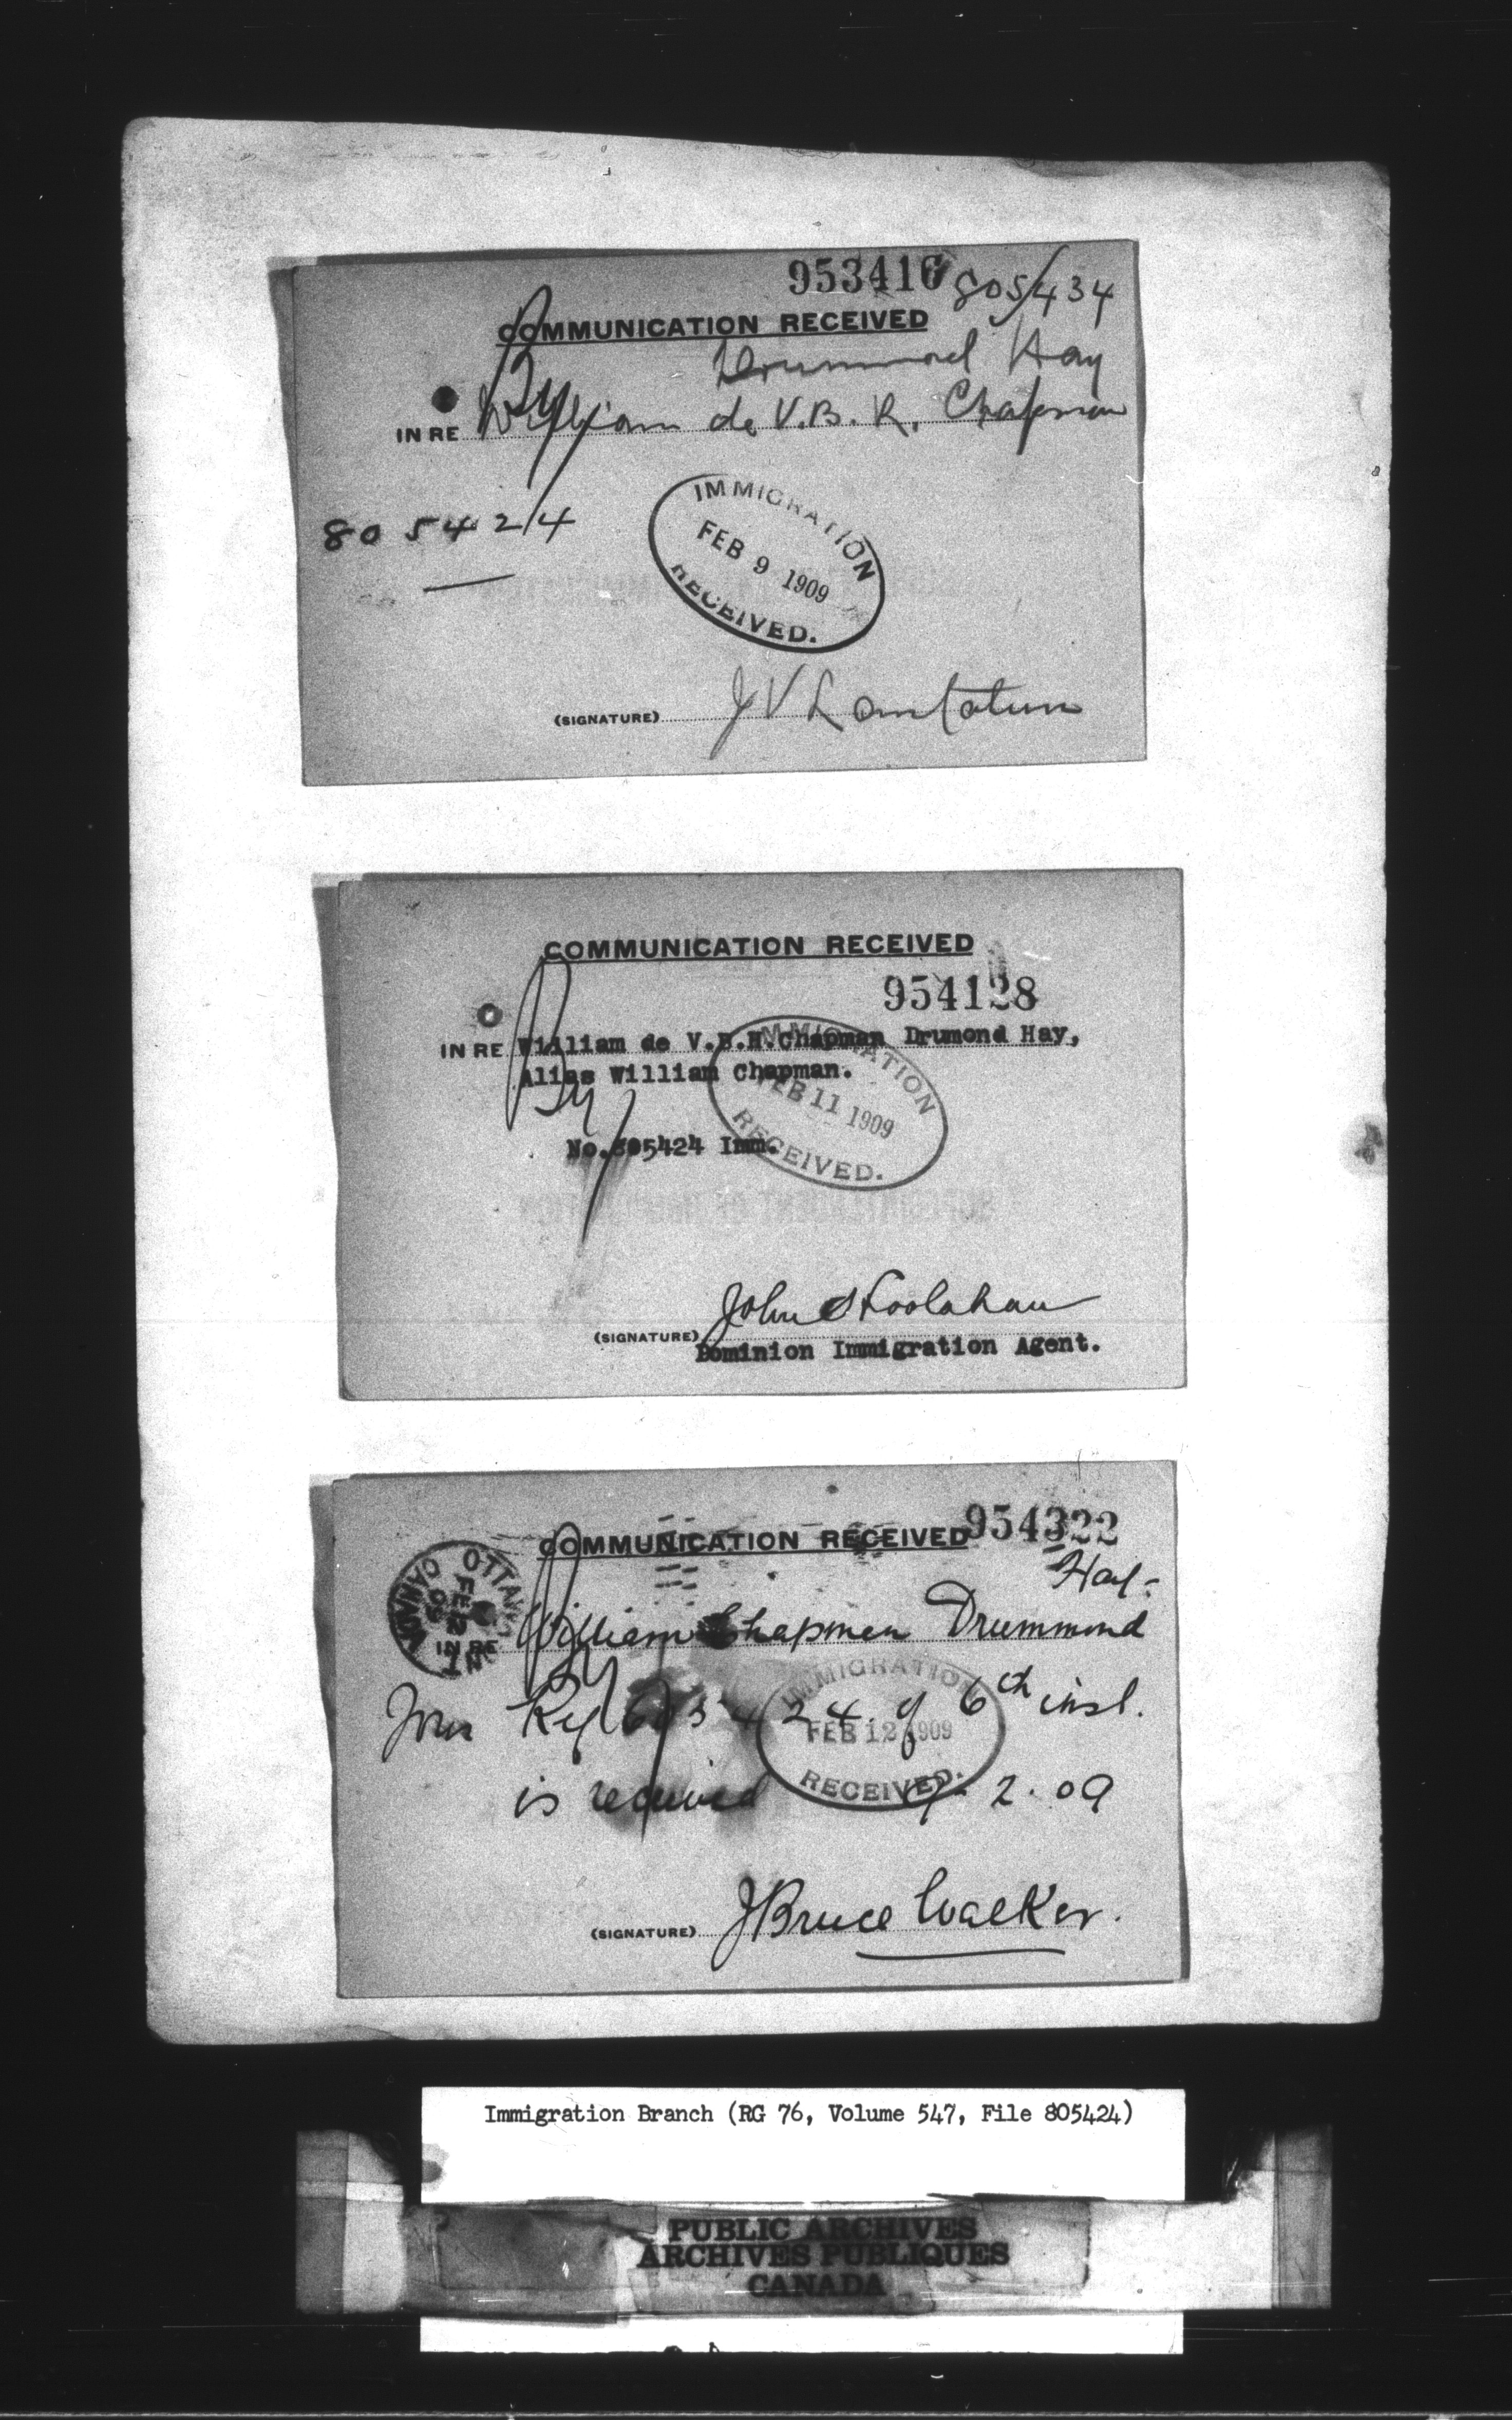 953416 805434
COMMUNICATION RECEIVED
Drummond Hay
IN RE William de V.B.R. Chapman
805424
IMMIGRATION
FEB 9 1909
RECEIVED.
(SIGNATURE) J V Lantalum
COMMUNICATION RECEIVED
954128
IN RE William de V.B.H.Chapman Drumond Hay,
Alias William Chapman.
No.805424 Imm.
IMMIGRATION
FEB 11 1909
RECEIVED.
(SIGNATURE) John Hoolahan
Dominion Immigration Agent.
954322
COMMUNICATION RECEIVED
Hay.
OTTAWA CANADA
IN RE William Chapman Drummond
Your Ref 805424 of 6th inst.
IMMIGRATION
FEB 12 1909
RECEIVED.
is received 9. 2. 09
(SIGNATURE) J Bruce Walker.
Immigration Branch (RG 76, Volume 547, File 805424)
PUBLIC ARCHIVES
ARCHIVES PUBLIQUES
CANADA